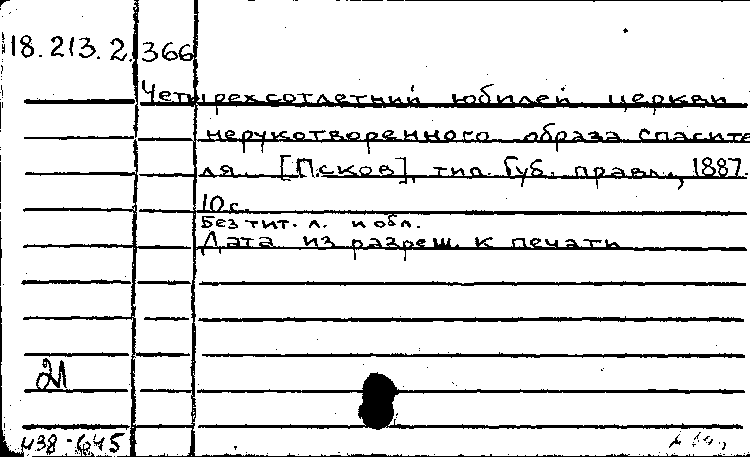 18.213.2.366
Четырехсотлетний юбилей церкви
нерукотворенного образа спасите
ля. [Псков], тип. Губ. правл., 1887.
10 с.
Без тит. л. и обл.
Дата из разреш. к печати
21
438-645